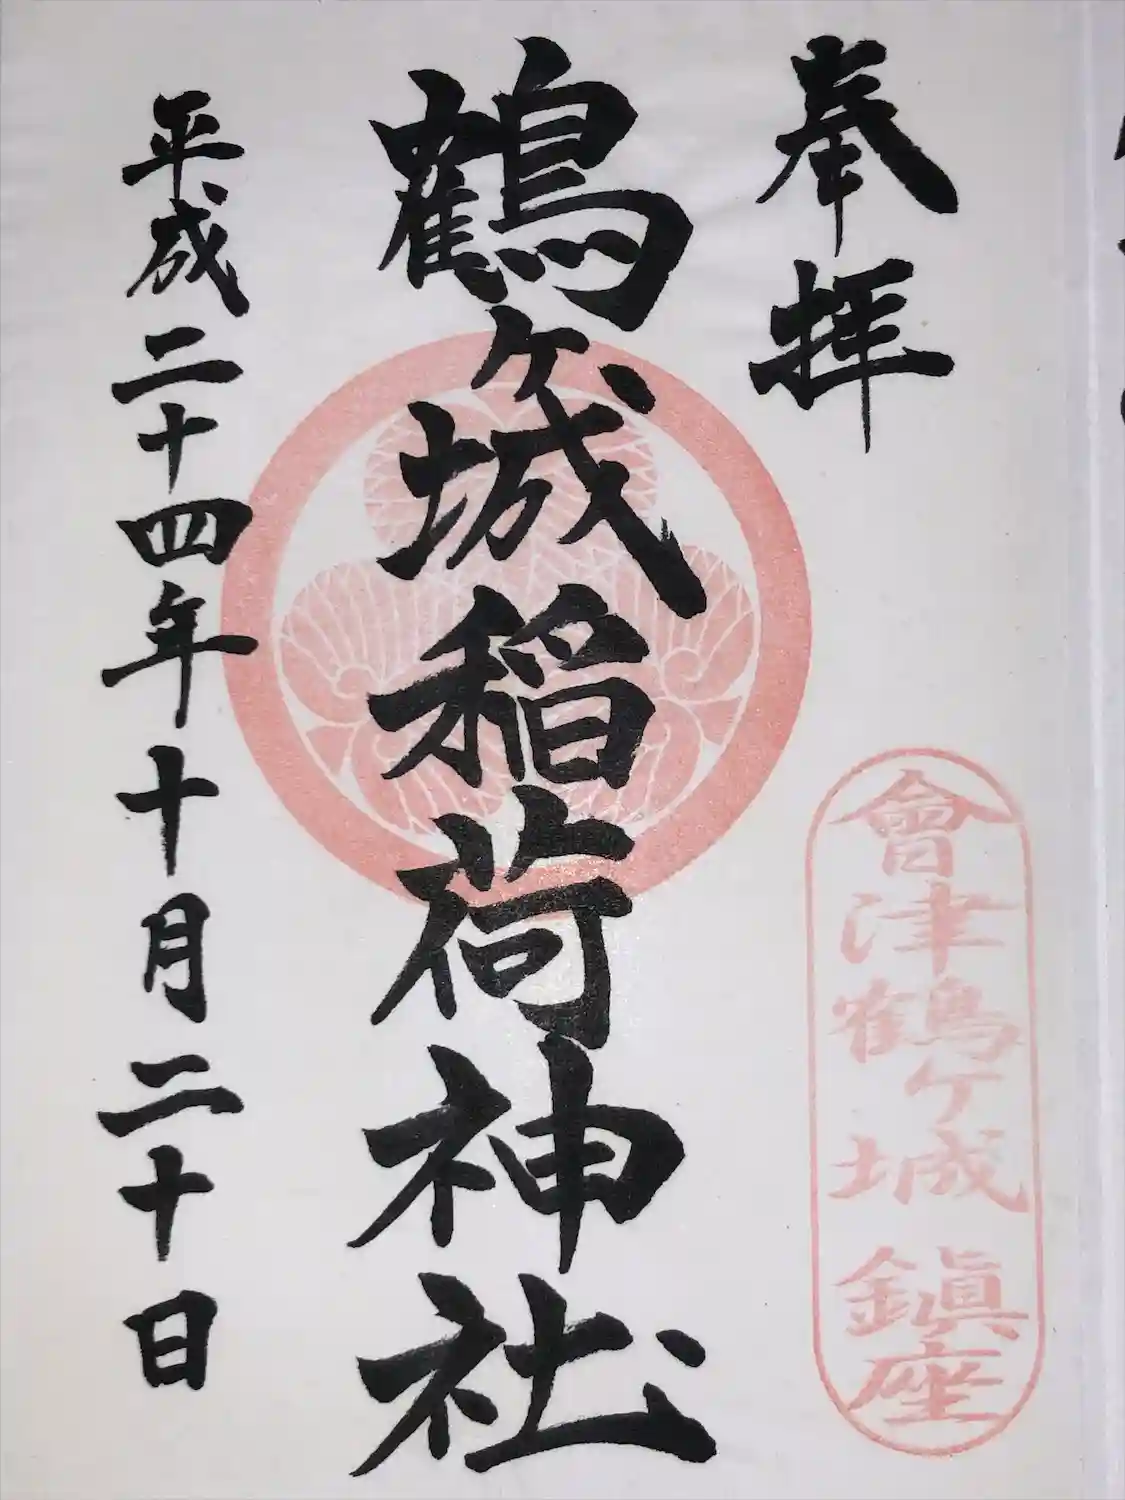 奉拝
會津鶴ケ城鎮座
鶴ヶ城稲荷神社
平成二十四年十月二十日